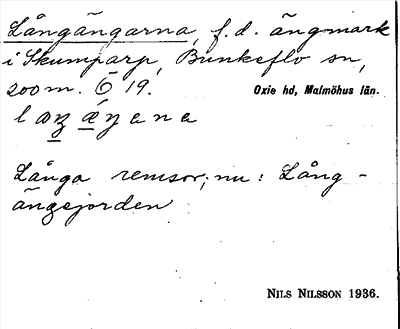 Långängarna, f. d. ängmark
i Skumparp, Bunkeflo sn,
200 m. Ö 19.
Oxie hd, Malmöhus län.
Långa remsor; nu: Lång-
ängsjorden
NILS NILSSON 1936.